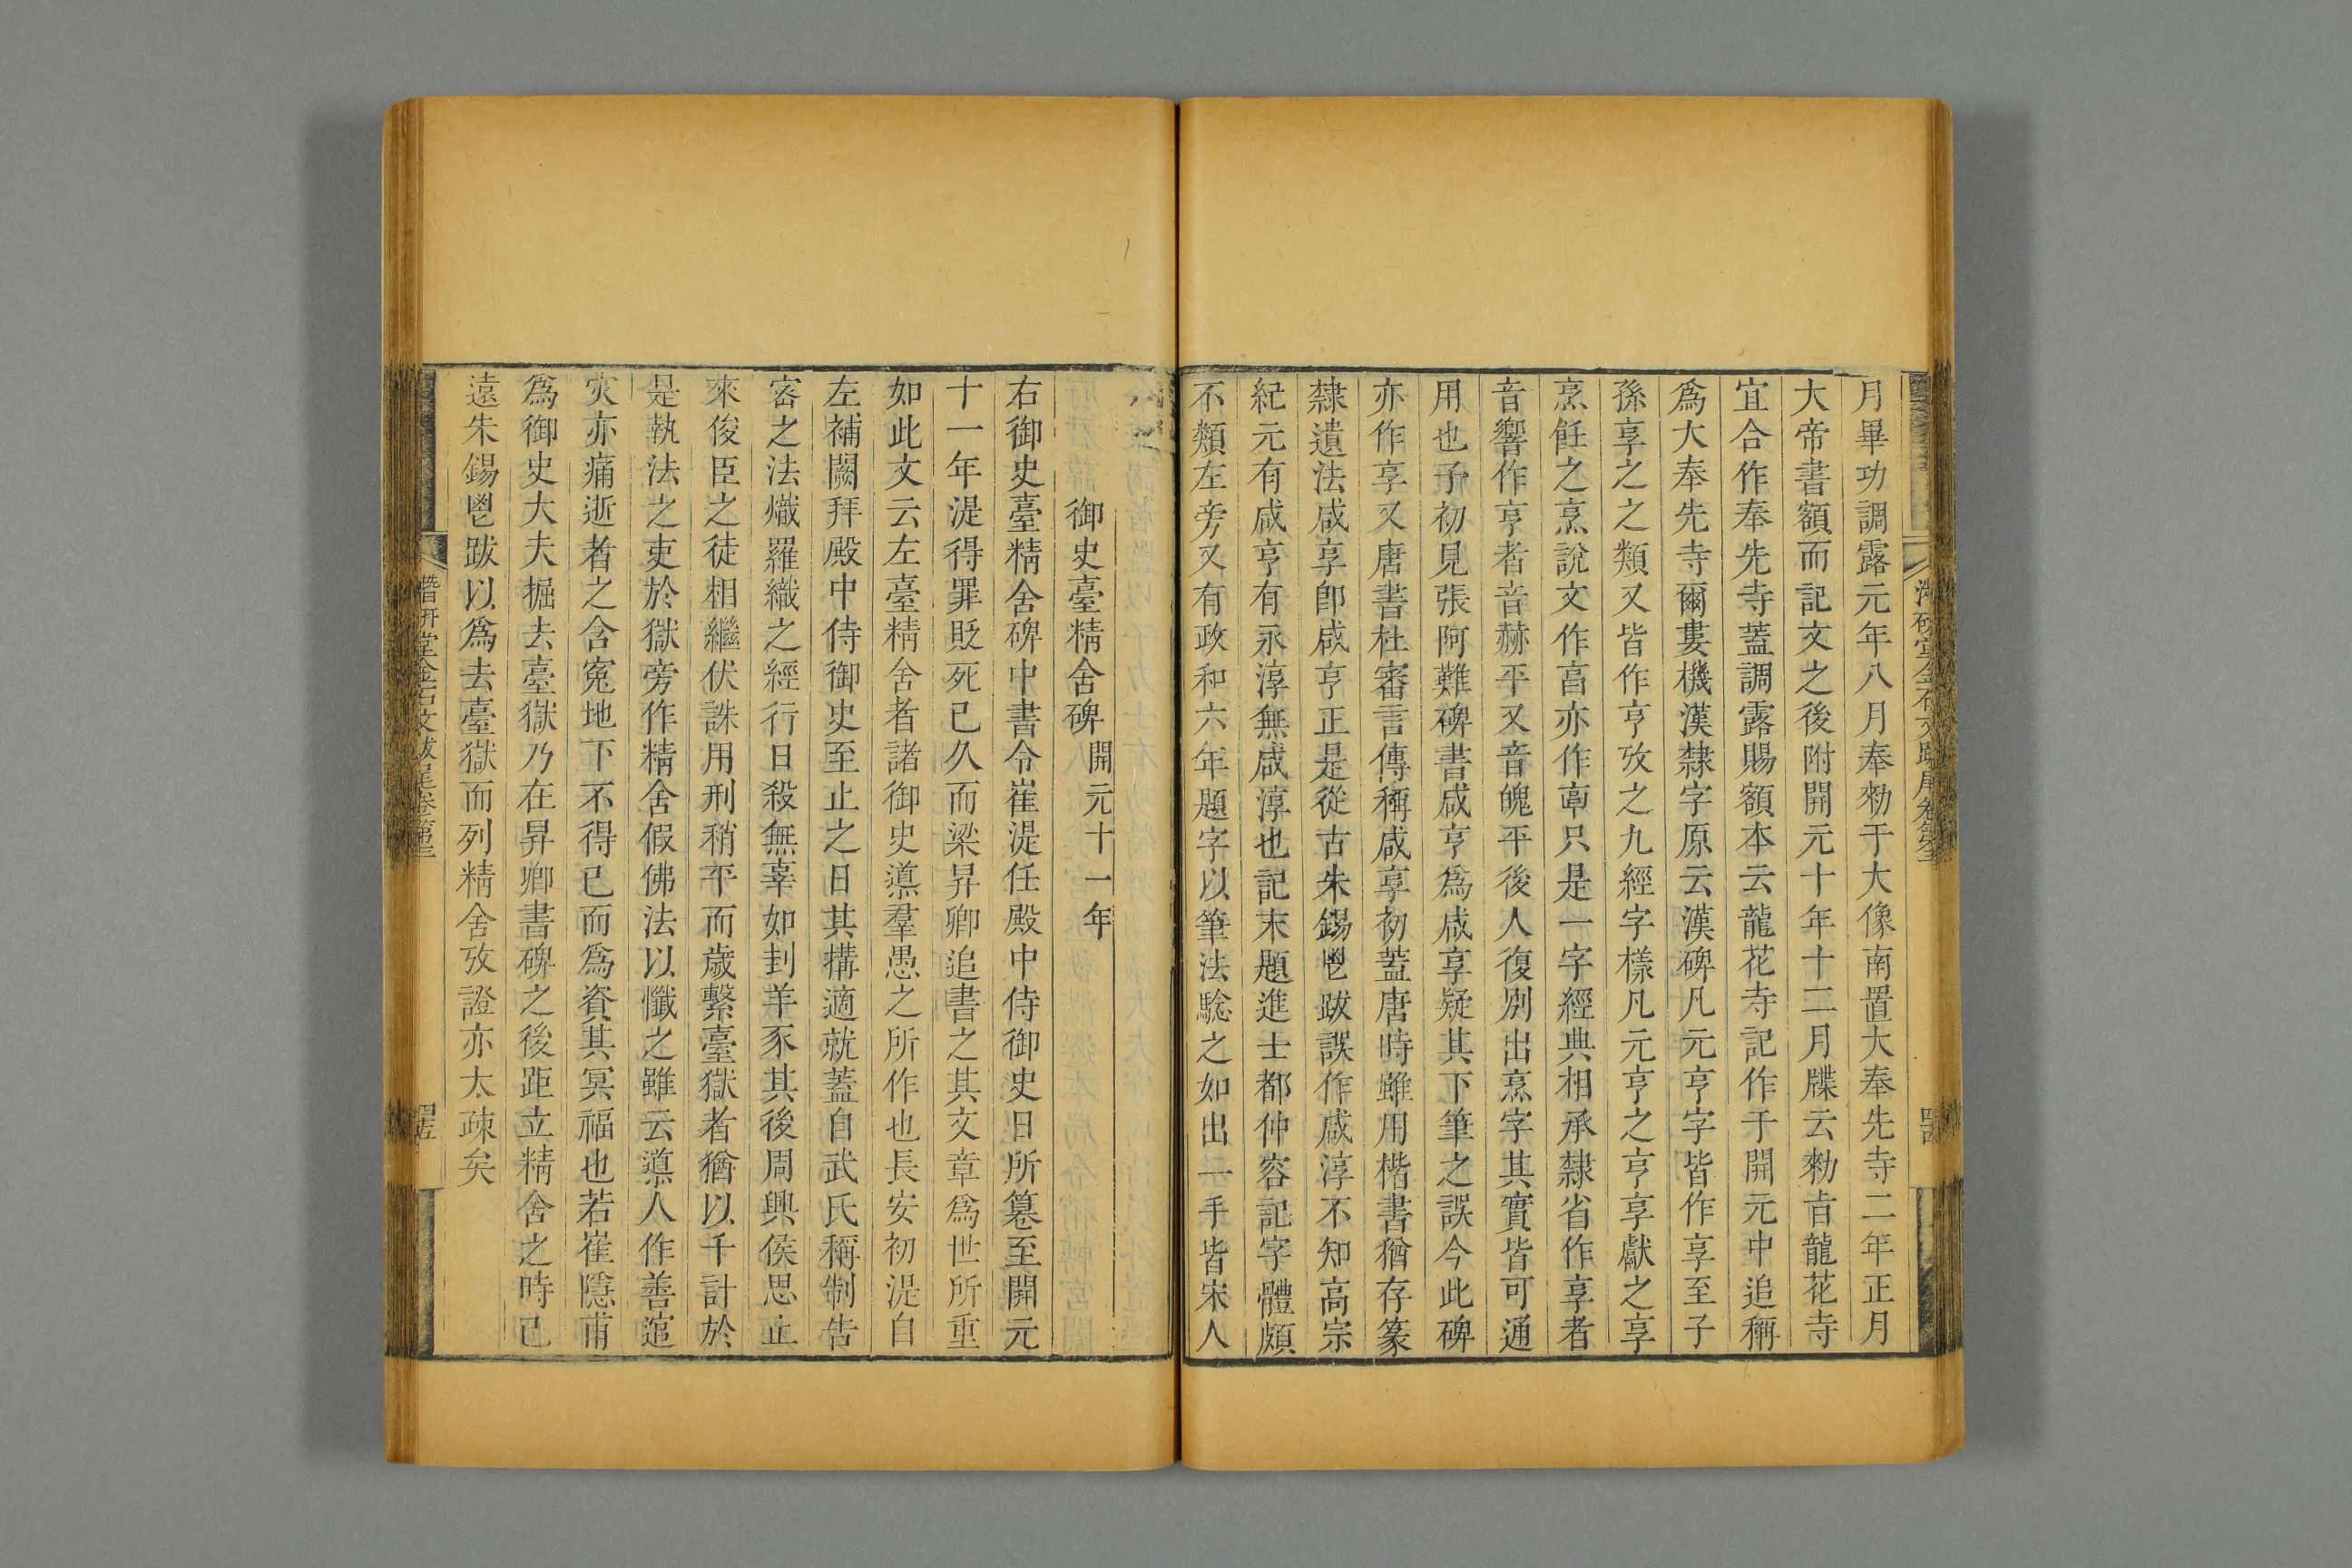 月畢功調露元年八月奉勑于大像南置大奉先寺二年正月
大帝書額而記文之後附開元十年十二月牒云勑旨龍花寺
宜合作奉先寺蓋調露賜額本云龍花寺記作于開元中追稱
爲大奉先寺爾婁機漢隸字原云漢碑凡元亨字皆作享至子
孫享之之類又皆作亨攷之九經字樣凡元亨之亨享獻之享
烹飪之烹說文作亯亦作亯只是一字經典相承隸省作享者
音響作亨者音赫平又音魄平後人復別出烹字其實皆可通
用也予初見張阿難碑書咸亨爲咸享疑其下筆之誤今此碑
亦作享又唐書杜審言傳稱咸享初蓋唐時雖用楷書猶存篆
隸遺法咸享卽咸亨正是從古朱錫鬯跋誤作咸淳不知高宗
紀元有咸亨有永淳無咸淳也記末題進士都仲容記字體頗
不類左旁又有政和六年題字以筆法騐之如出一手皆宋人
御史臺精舍碑開元十一年
右御史臺精舍碑中書令崔湜任殿中侍御史日所篹至開元
十一年湜得罪貶死已久而梁昇卿追書之其文章爲世所重
如此文云左臺精舍者諸御史導羣愚之所作也長安初湜自
左補闕拜殿中侍御史至止之日其構適就蓋自武氏稱制告
密之法熾羅織之經行日殺無辜如刲羊豕其後周興侯思止
來俊臣之徒相繼伏誅用刑稍平而歲繫臺獄者猶以千計於
是執法之吏於獄旁作精舍假佛法以懺之雖云導人作善逭
灾亦痛逝者之含寃地下不得已而爲資其冥福也若崔隱甫
爲御史大夫掘去臺獄乃在昇卿書碑之後距立精舍之時已
遠朱錫鬯跋以爲去臺獄而列精舍攷證亦太疎矣
潛研堂金石文跋尾卷第五